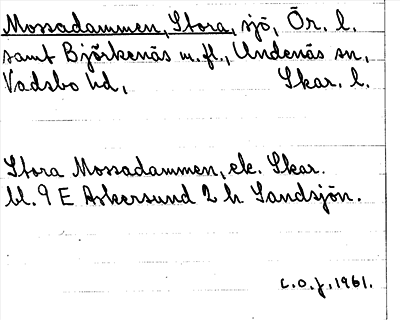 Mossadammen, Stora, sjö, Ör. l.
samt Björkenäs m.fl., Undenäs sn,
Vadsbo hd, Skar. l.
Stora Mossadammen, ek. Skar.
bl. 9 E Askersund 2 h Sandsjön.
C.O.J. 1961.